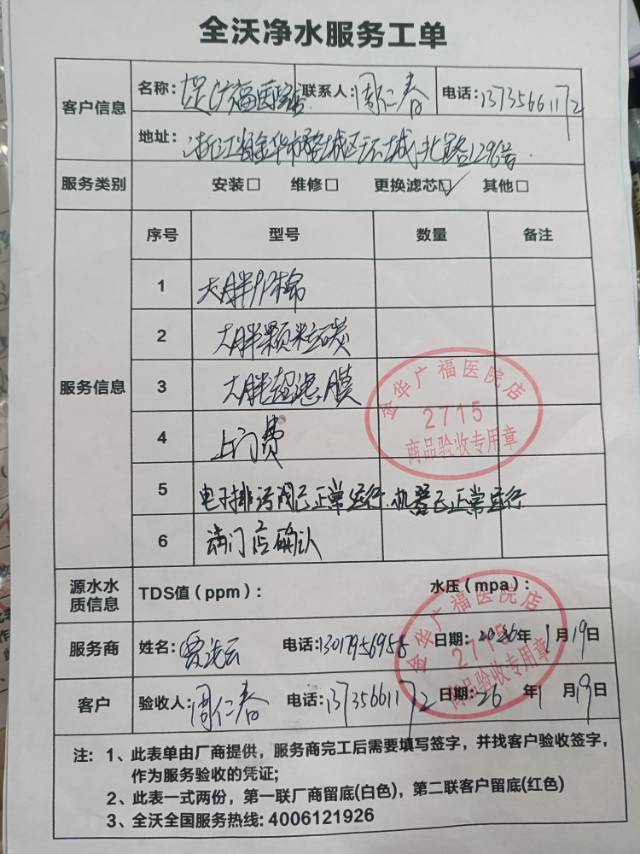 全沃净水服务工单
客户信息
名称: 广福医院店 联系人: 周仁春 电话: 13735661172
地址: 浙江省金华市婺城区环城北路1296号
服务类别 安装□ 维修□ 更换滤芯☑ 其他□
服务信息
序号 型号 数量 备注
1 大胖PP棉
2 大胖颗粒碳
3 大胖超滤膜
4 上门费
5 电子排污阀已正常运行.机器已正常运行
6 请门店确认
金华广福医院店
2715
商品验收专用章
源水水质信息 TDS值(ppm): 水压(mpa):
服务商 姓名: 电话: 13017956958 日期: 2026年1月19日
金华广福医院店
2715
商品验收专用章
客户 验收人: 周仁春 电话: 13735661172 日期: 26年1月19日
注: 1、此表单由厂商提供，服务商完工后需要填写签字，并找客户验收签字，
作为服务验收的凭证;
2、此表一式两份，第一联厂商留底(白色)，第二联客户留底(红色)
3、全沃全国服务热线: 4006121926